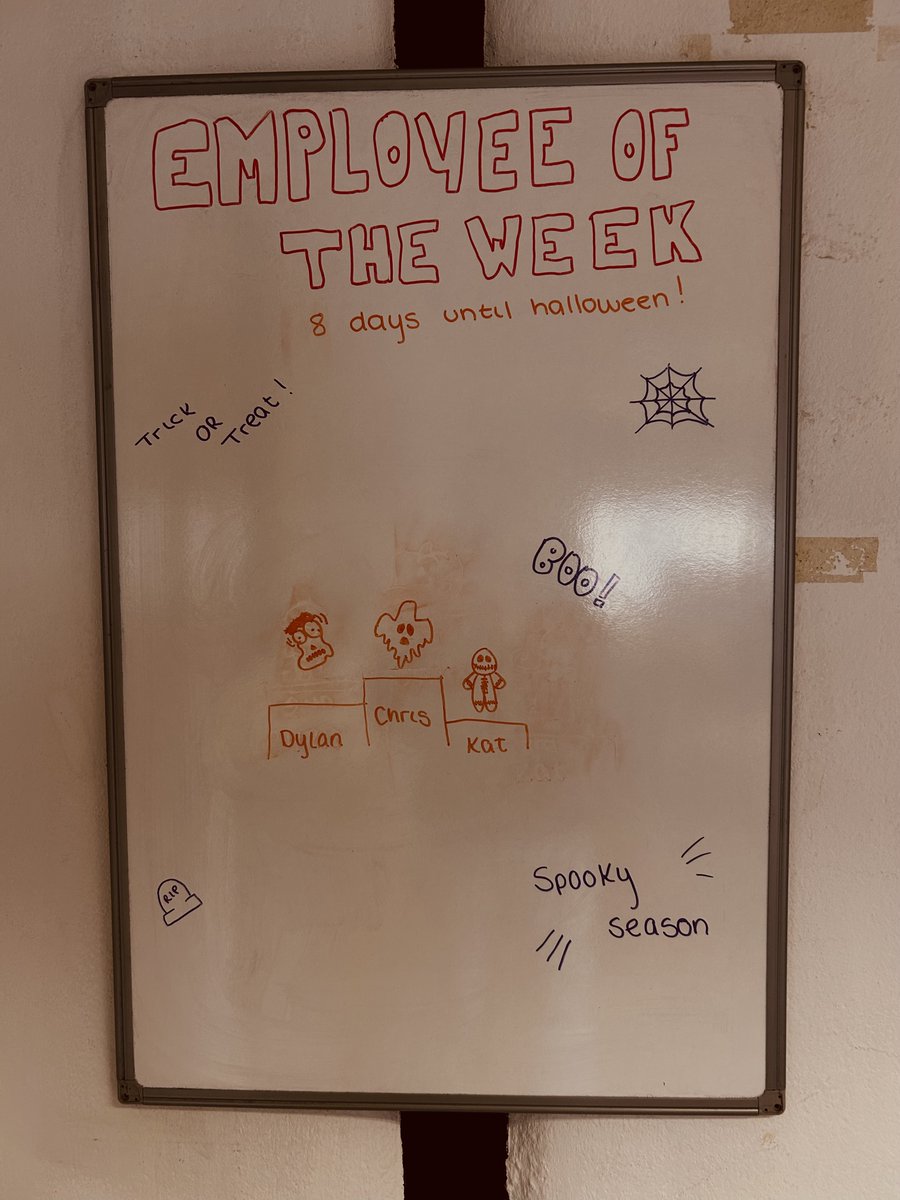 EMPLOYEE OF
THE WEEK
8 days until halloween!
Trick
OR
Treat!
BOO!
Dylan
Chris
Kat
RIP
Spooky
season